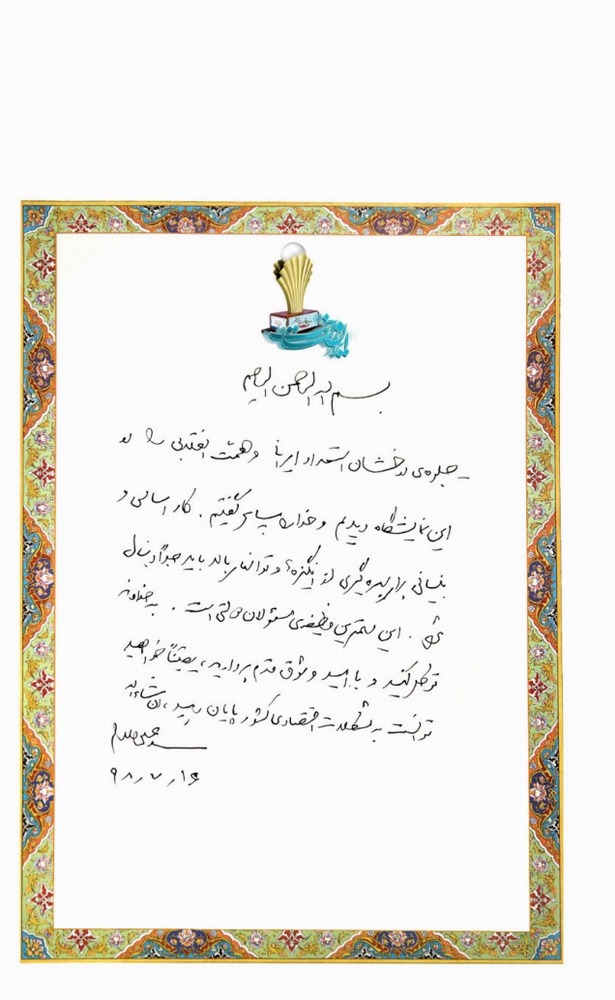 بسم الله الرحمن الرحیم
جلوه‌ی درخشان استعداد ایرانی و همّت انقلابی را در
این نمایشگاه دیدم و خدا را سپاس گفتیم. کار اساسی و
بنیانی برای بهره‌گیری از انگیزه‌ها و توانهای بالا باید جداً دنبال
شود. این مهمترین وظیفه‌ی مسئولان دولتی است. به خداوند
توکل کنید و با امید و وثوق قدم بردارید، یقیناً خواهید
توانست به مشکلات اقتصادی کشور پایان دهید، ان‌شاءالله
سیدعلی خامنه‌ای
۹۸٫۷٫۱۶